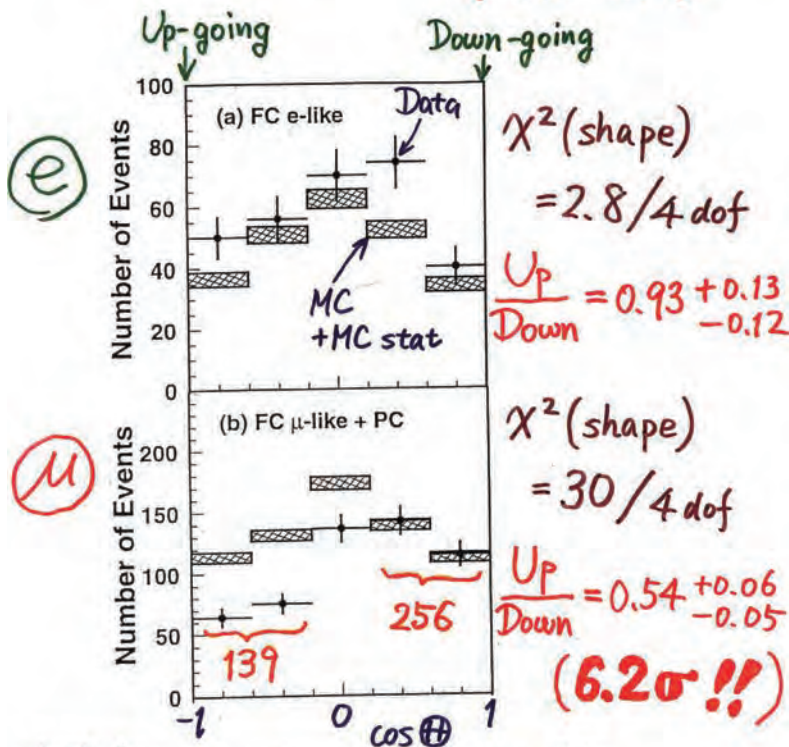 Up-going Down-going
100
80
60
40
20
0
Number of Events
(a) FC e-like
Data
MC
+MC stat
e
χ² (shape)
= 2.8/4 dof
Up/Down = 0.93 +0.13 -0.12
200
150
100
50
0
Number of Events
(b) FC μ-like + PC
μ
139
256
-1 0 1
cos Θ
χ² (shape)
= 30/4 dof
Up/Down = 0.54 +0.06 -0.05
(6.2σ !!)